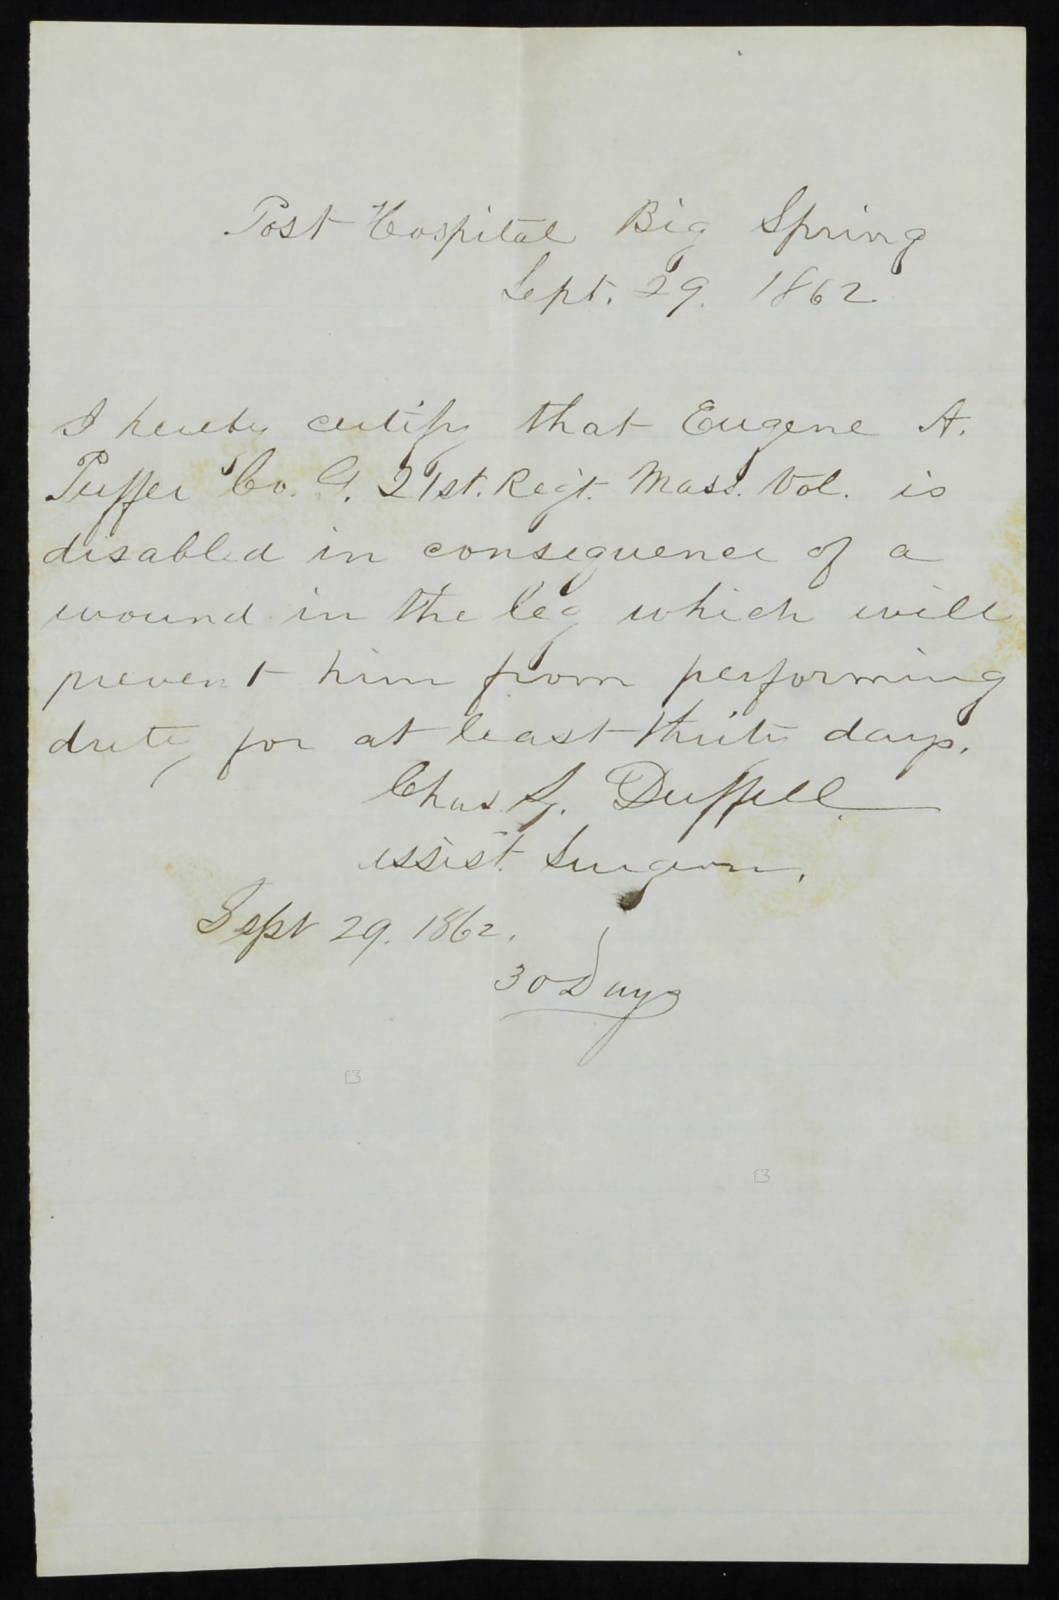 Post Hospital Big Spring
Sept. 29. 1862
I hereby certify that Eugene A.
Puffer Co. G. 21st. Regt. Mass. Vol. is
disabled in consequence of a
wound in the leg which will
prevent him from performing
duty for at least thirty days.
Chas. Duffell
assist. Surgeon.
Sept 29. 1862.
30 Days